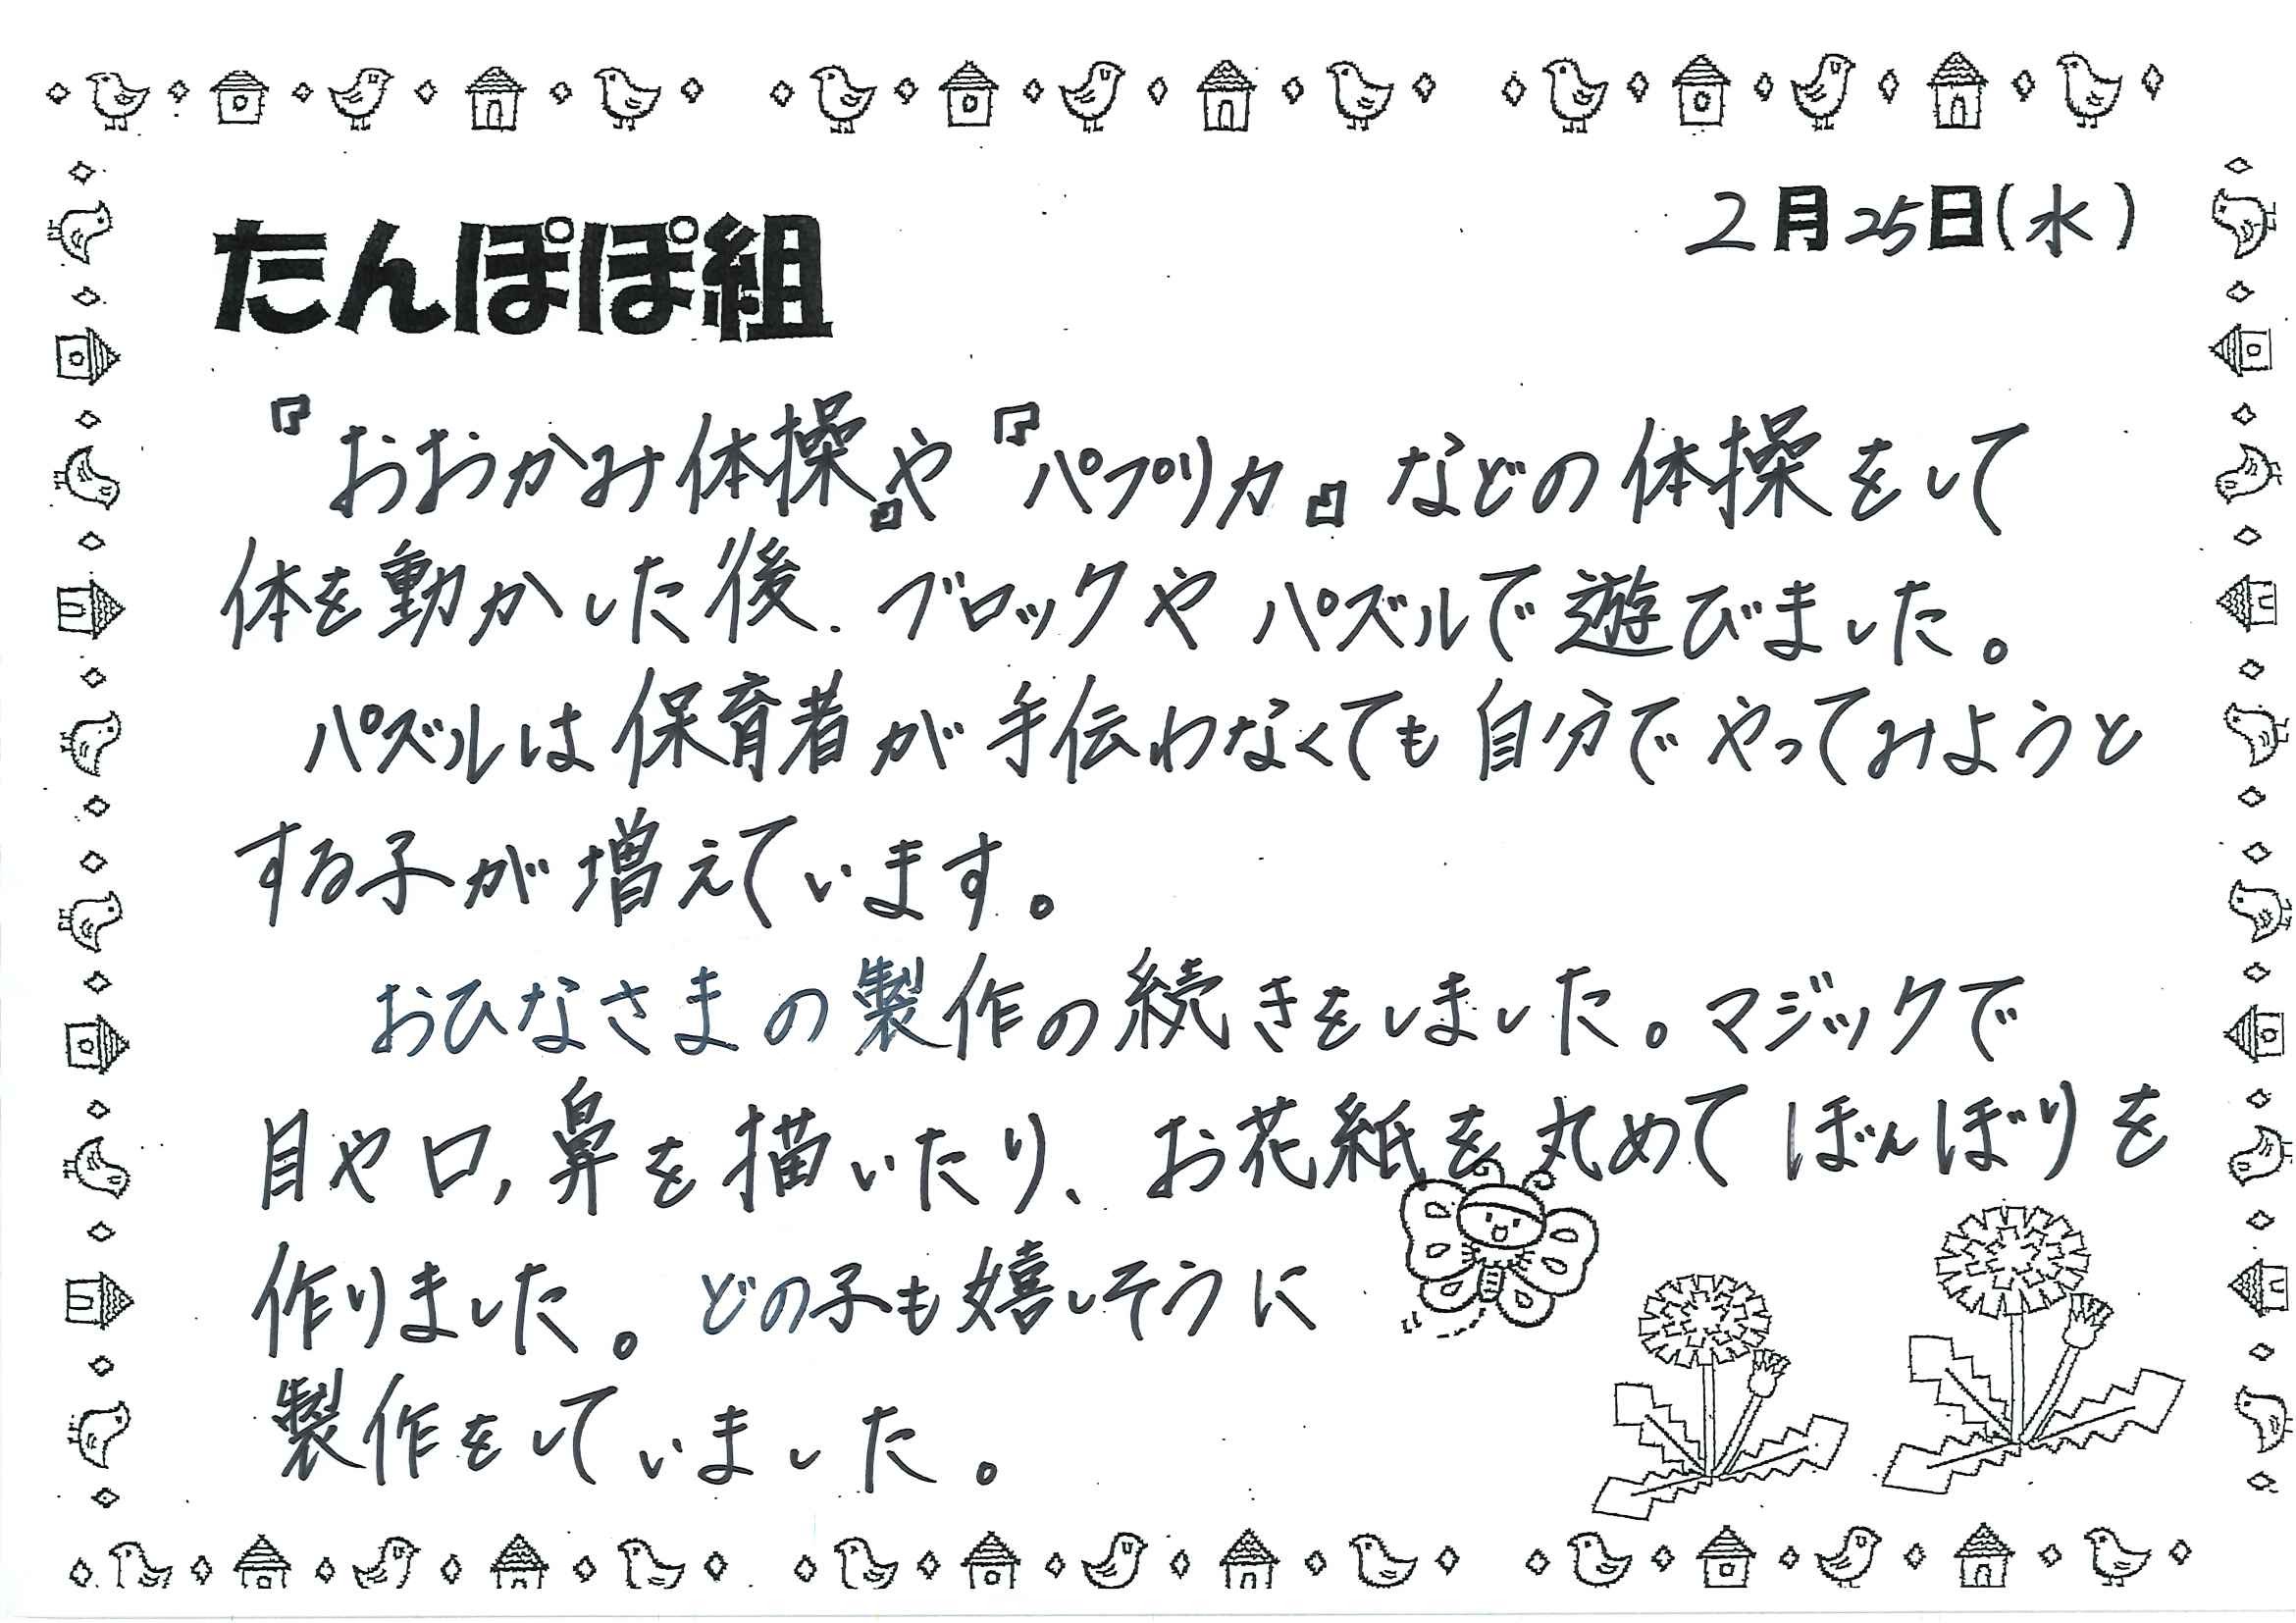 2月25日(水)
たんぽぽ組
『おおかみ体操』や『パプリカ』などの体操をして
体を動かした後、ブロックやパズルで遊びました。
パズルは保育者が手伝わなくても自分でやってみようと
する子が増えています。
おひなさまの製作の続きをしました。マジックで
目や口、鼻を描いたり、お花紙を丸めてぼんぼりを
作りました。どの子も嬉しそうに
製作をしていました。